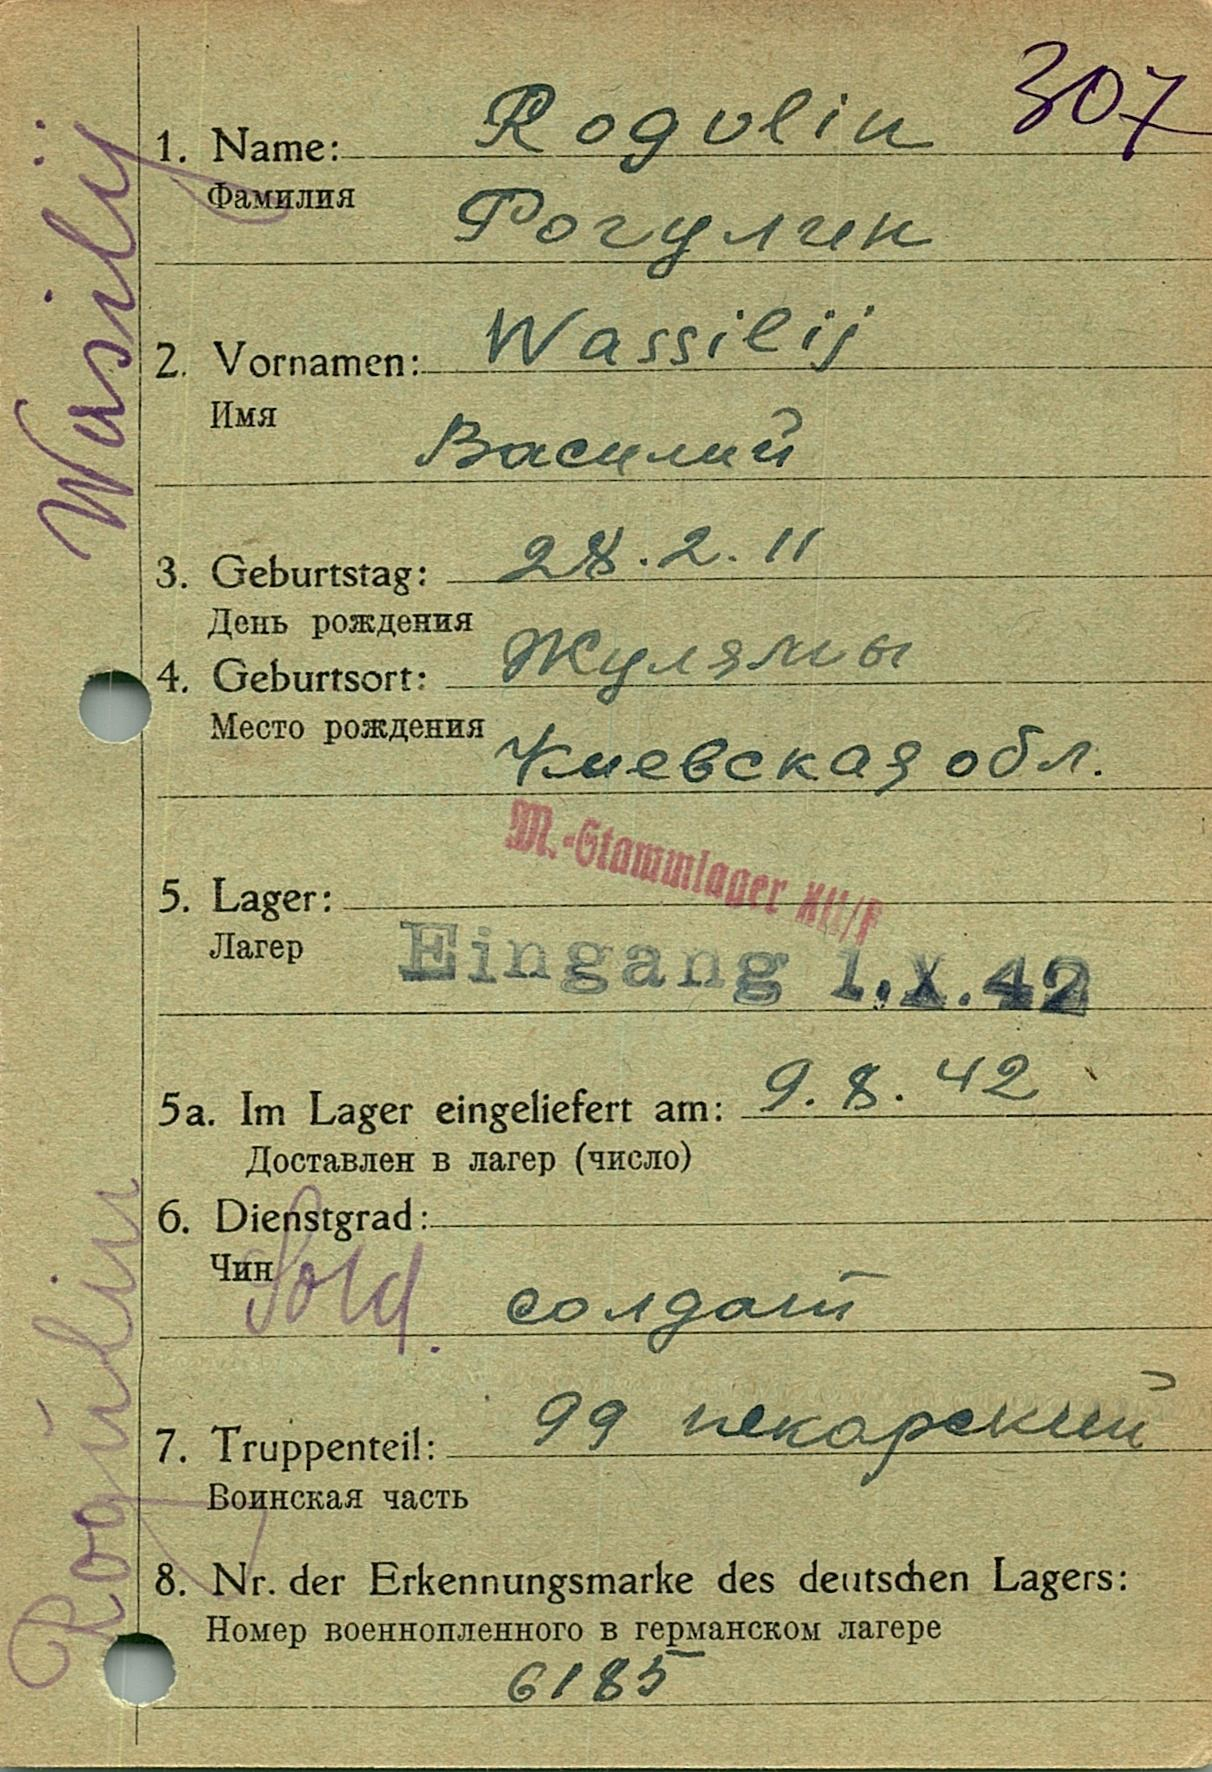 307
1. Name: Rogulin
Фамилия
Рогулин
2. Vornamen: Wassilij
Имя
Василий
3. Geburtstag: 28.2.11
День рождения
4. Geburtsort: Жуляны
Место рождения
Киевская обл.
M.-Stammlager XII/F
5. Lager:
Лагер
Eingang 1.X.42
5a. Im Lager eingeliefert am: 9.8.42
Доставлен в лагер (число)
6. Dienstgrad:
Чин
Sold. солдат
7. Truppenteil: 99 пекарский
Воинская часть
8. Nr. der Erkennungsmarke des deutschen Lagers:
Номер военнопленного в германском лагере
6185
Rogulin Wasilij